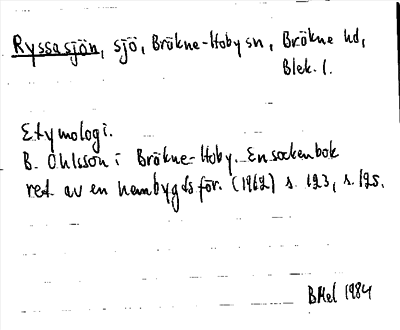 Ryssasjön, sjö, Bräkne-Hoby sn, Bräkne hd,
Blek. l.
Etymologi.
B. Ohlsson i Bräkne-Hoby. En sockenbok
red. av en hembygdsför. (1962) s. 123, s. 125.
BHel 1984